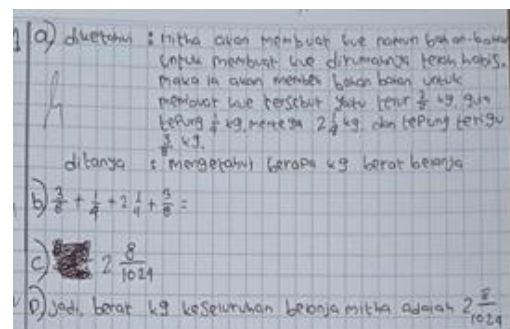 a) diketahui : Mitha akan membuat kue namun bahan-bahan
untuk membuat kue dirumahnya telah habis.
maka ia akan membeli bahan bahan untuk
membuat kue tersebut yaitu telur 3/8 kg, gula
tepung 1/4 kg, mentega 2 1/4 kg, dan tepung terigu
3/8 kg.
ditanya : mengetahui berapa kg berat belanja
b) 3/8 + 1/4 + 2 1/4 + 3/8 =
c) 2 8/1024
D) Jadi, berat kg keseluruhan belanja mitha adalah 2 8/1024